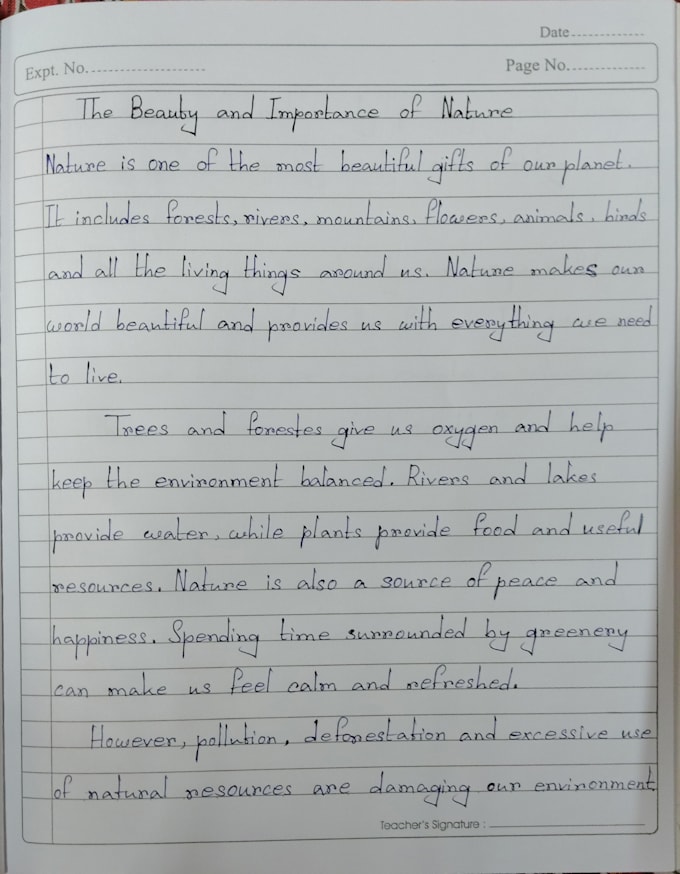 Date
Expt. No.
Page No.
The Beauty and Importance of Nature
Nature is one of the most beautiful gifts of our planet.
It includes forests, rivers, mountains, flowers, animals, birds
and all the living things around us. Nature makes our
world beautiful and provides us with everything we need
to live.
Trees and forestes give us oxygen and help
keep the environment balanced. Rivers and lakes
provide water, while plants provide food and useful
resources. Nature is also a source of peace and
happiness. Spending time surrounded by greenery
can make us feel calm and refreshed.
However, pollution, deforestation and excessive use
of natural resources are damaging our environment
Teacher's Signature :